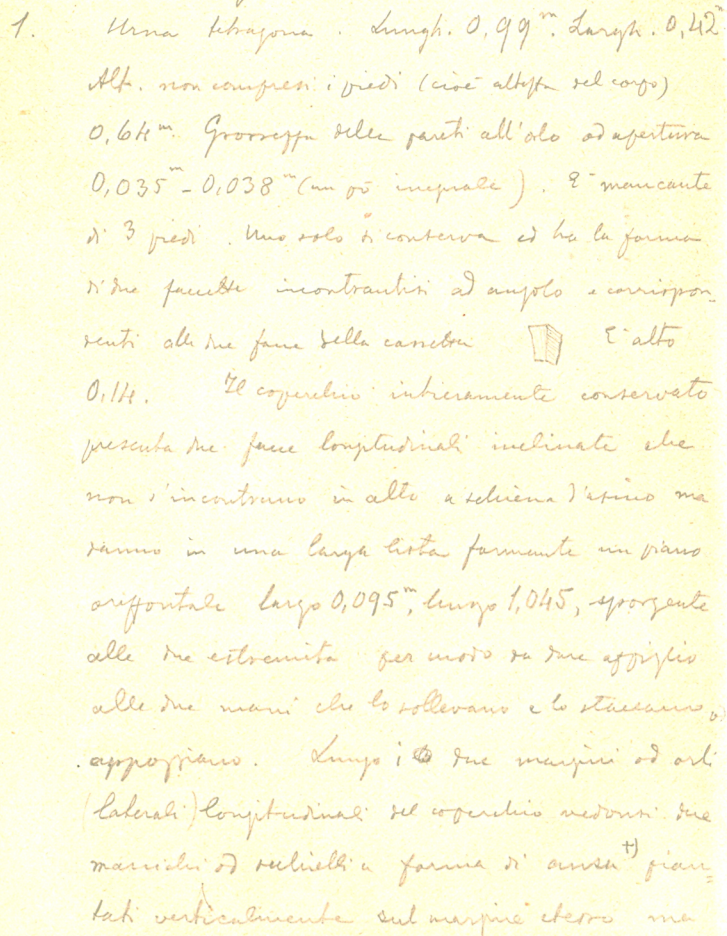 1. Urna tetragona. Lungh. 0,99m. Largh. 0,42m
Alt. non compresi i piedi (cioè altezza del corpo)
0,64m. Grossezza delle pareti all'orlo od apertura
0,035m - 0,038m (un pò ineguale). E' mancante
di 3 piedi. Uno solo si conserva ed ha la forma
di due faccette incontrantisi ad angolo e corrispon-
denti alle due facce della cassetta E' alto
0,14. Il coperchio intieramente conservato
presenta due facce longitudinali inclinate che
non s'incontrano in alto a schiena d'asino ma
vanno in una larga lista formante un piano
orizzontale largo 0,095m, lungo 1,045, sporgente
alle due estremità per modo da dare appiglio
alle due mani che lo sollevano e lo staccano o
appoggiano. Lungo i due margini od orli
(laterali) longitudinali del coperchio vedonsi due
manichi od a forma di ansa +) pian=
tati verticalmente sul margine stesso ma